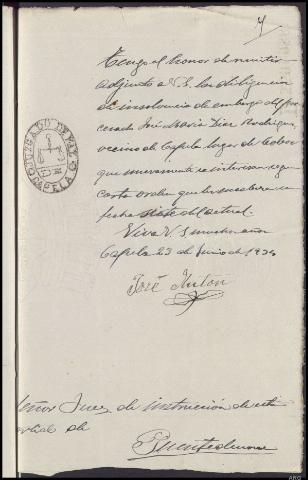 4
Tengo el honor de remitir
adjunto a V.S. las diligencias
de insolvencia de embargo del pro-
cesado José Maria Diaz Rodriguez
vecino de Capela lugar de
que nuevamente se interesan segun
carta orden que las encabeza con
fecha siete del actual.
Viva V. S muchos años
Capela 23 de Junio de 193
José Antón
Señor Juez de instrucción de este
partido de
Puentedeume
JUZGADO DE PAZ
CAPELA